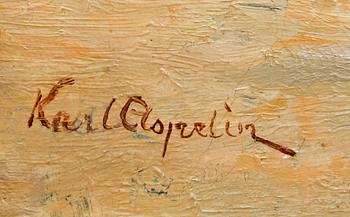 Karl Aspelin